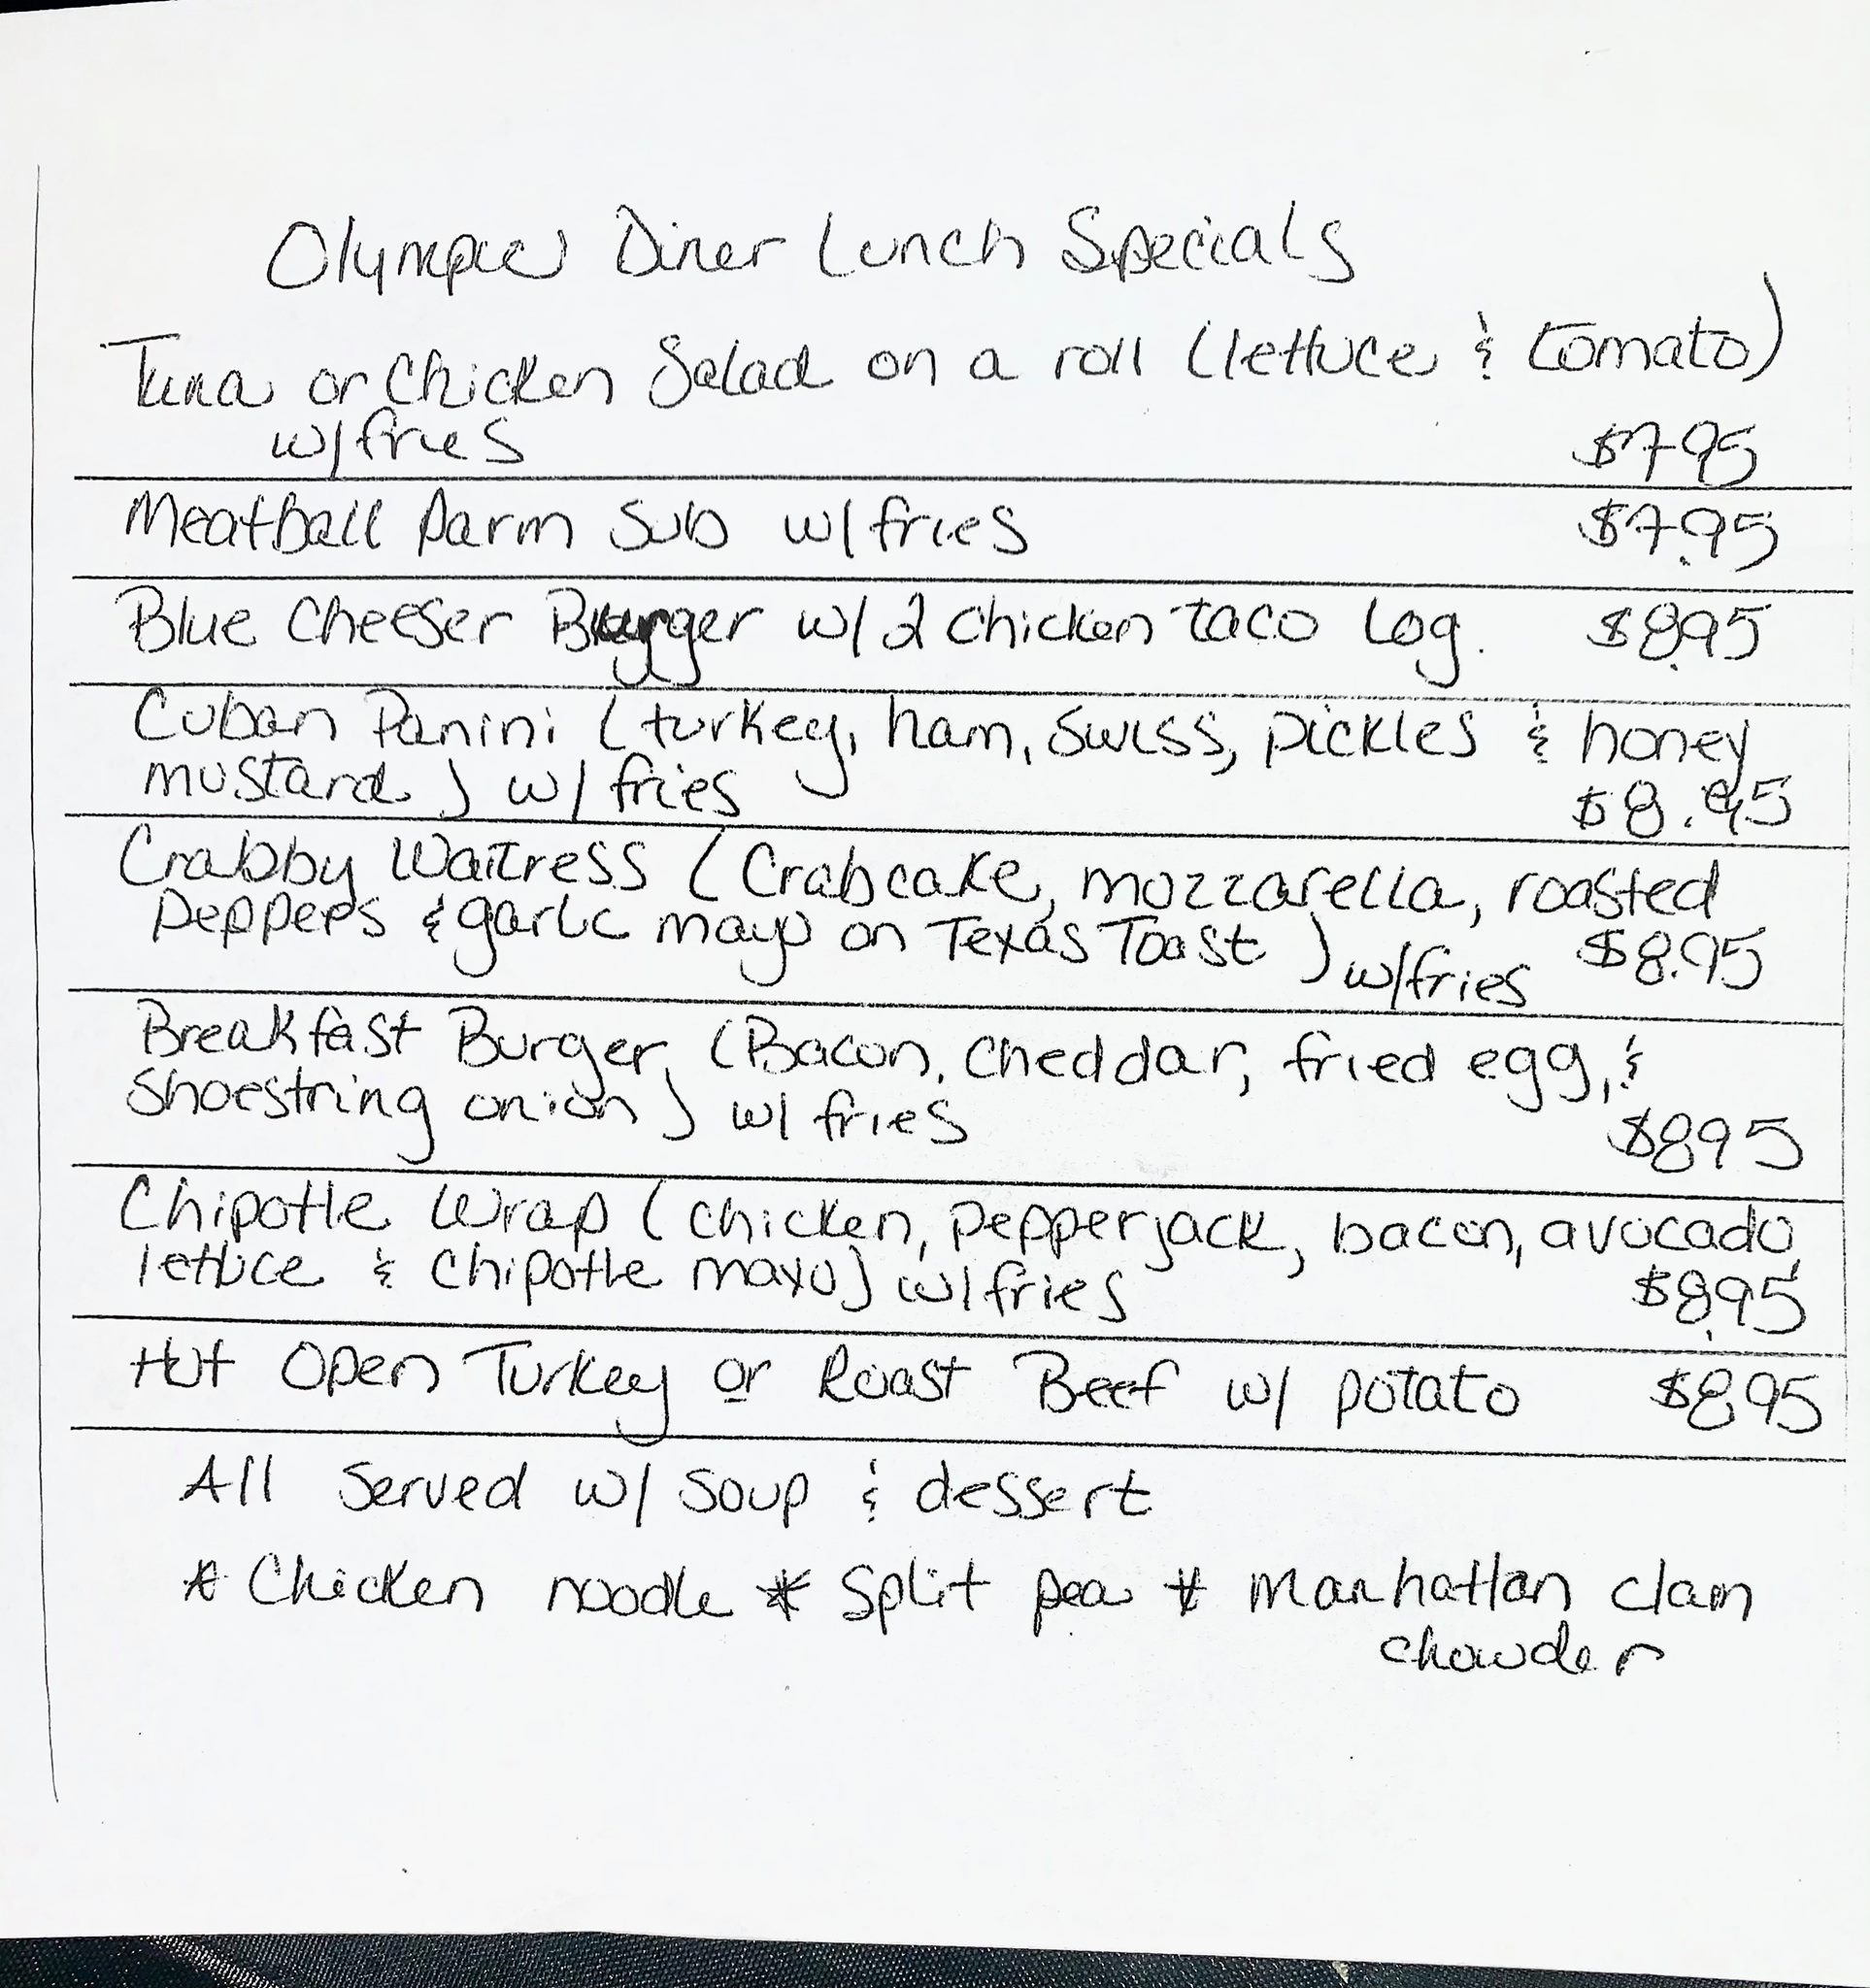 Olympic Diner Lunch Specials
Tuna or Chicken Salad on a roll (lettuce & tomato)
w/fries $7.95
Meatball Parm Sub w/fries $7.95
Blue Cheeser Burger w/2 chicken taco Log. $8.95
Cuban Panini (turkey, ham, swiss, pickles & honey
mustard) w/ fries $8.95
Crabby Waitress (Crabcake, mozzarella, roasted
peppers & garlic mayo on Texas Toast) w/fries $8.95
Breakfast Burger (Bacon, cheddar, fried egg, &
shoestring onion) w/ fries $8.95
Chipotle Wrap (chicken, pepperjack, bacon, avocado,
lettuce & chipotle mayo) w/fries $8.95
Hot Open Turkey or Roast Beef w/ potato $8.95
All Served w/ soup & dessert
* Chicken noodle * Split pea * Manhattan clam
chowder